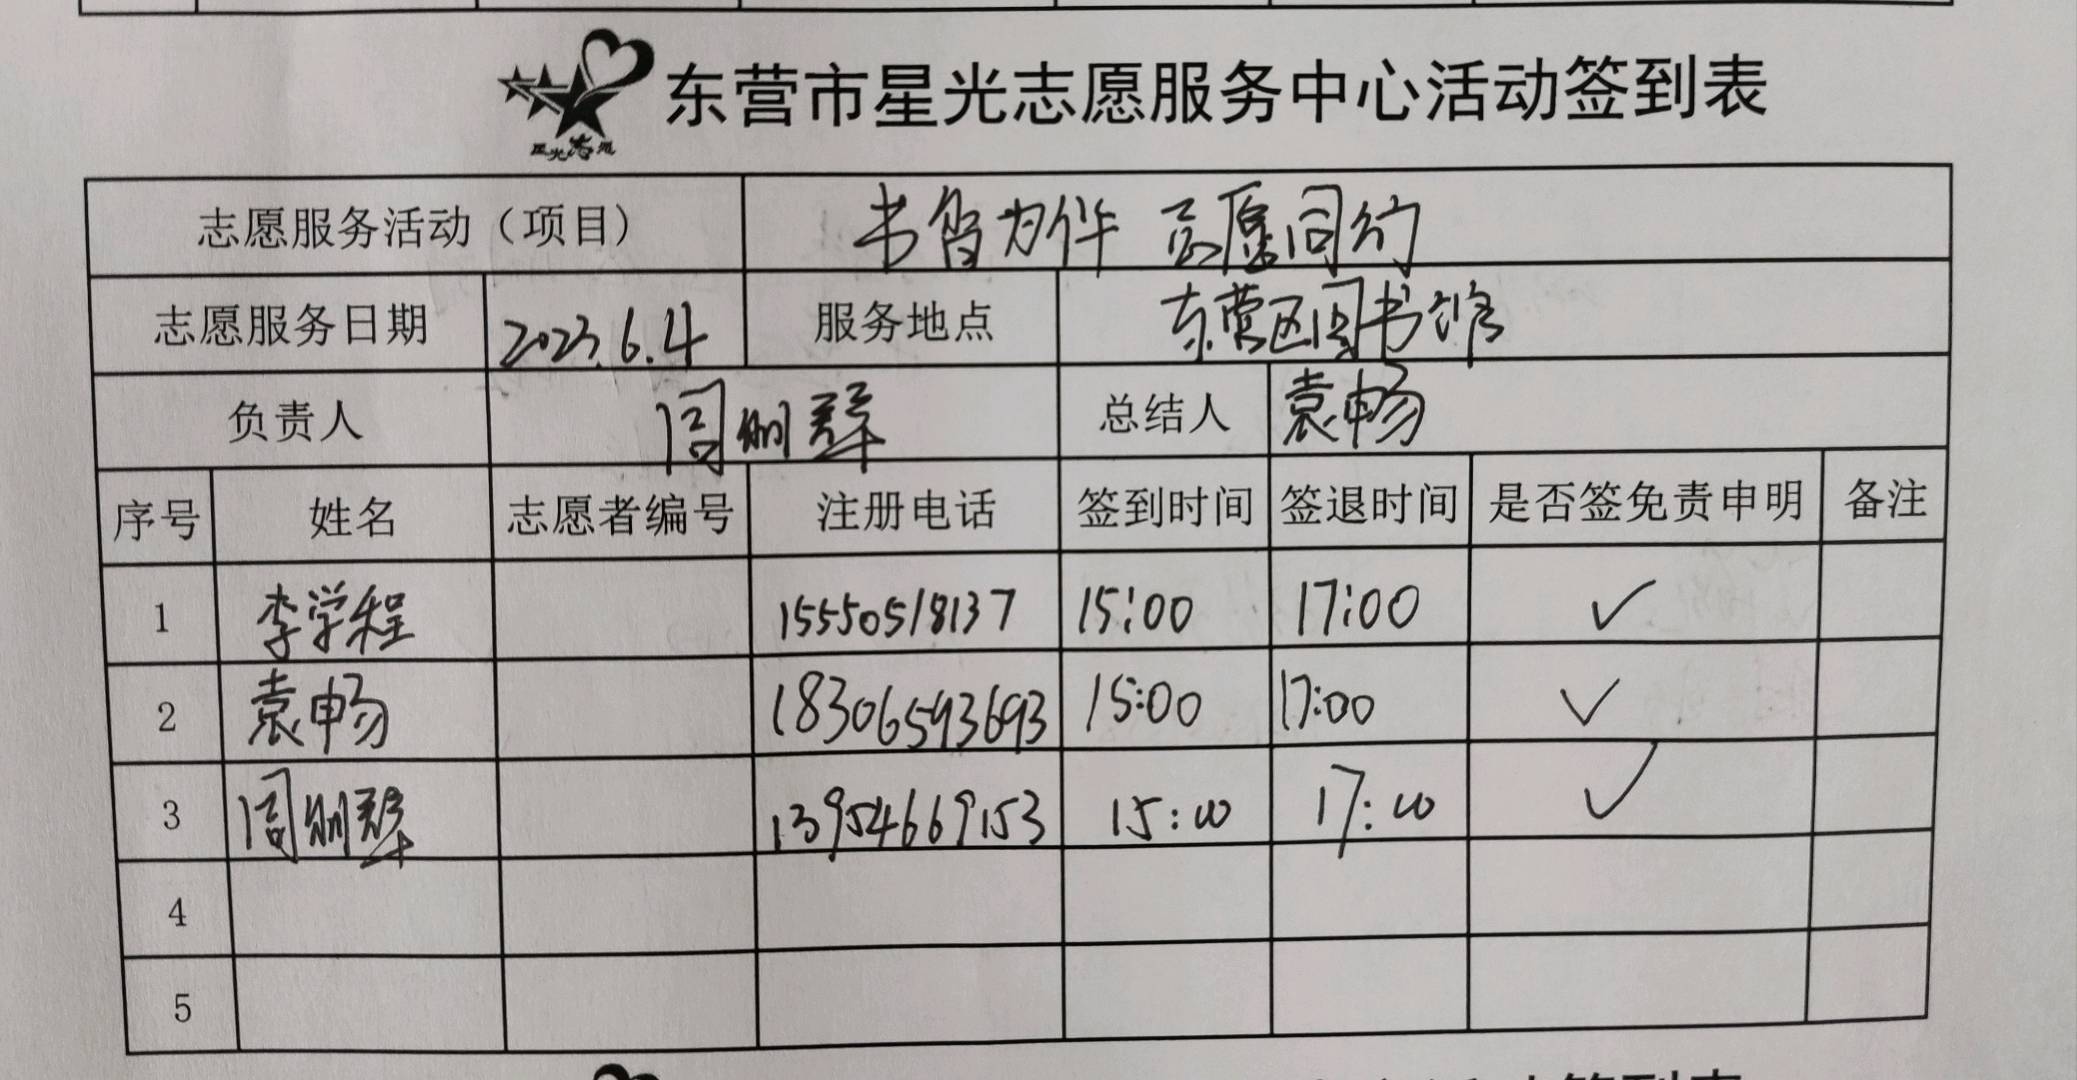 星光志愿
东营市星光志愿服务中心活动签到表
志愿服务活动（项目） 书香为伴 志愿同行
志愿服务日期 2023.6.4 服务地点 东营区图书馆
负责人 总结人 袁畅
序号 姓名 志愿者编号 注册电话 签到时间 签退时间 是否签免责申明 备注
1 李学程 15550518137 15:00 17:00 ✓
2 袁畅 18306593693 15:00 17:00 ✓
3 13954669153 15:00 17:00 ✓
4
5